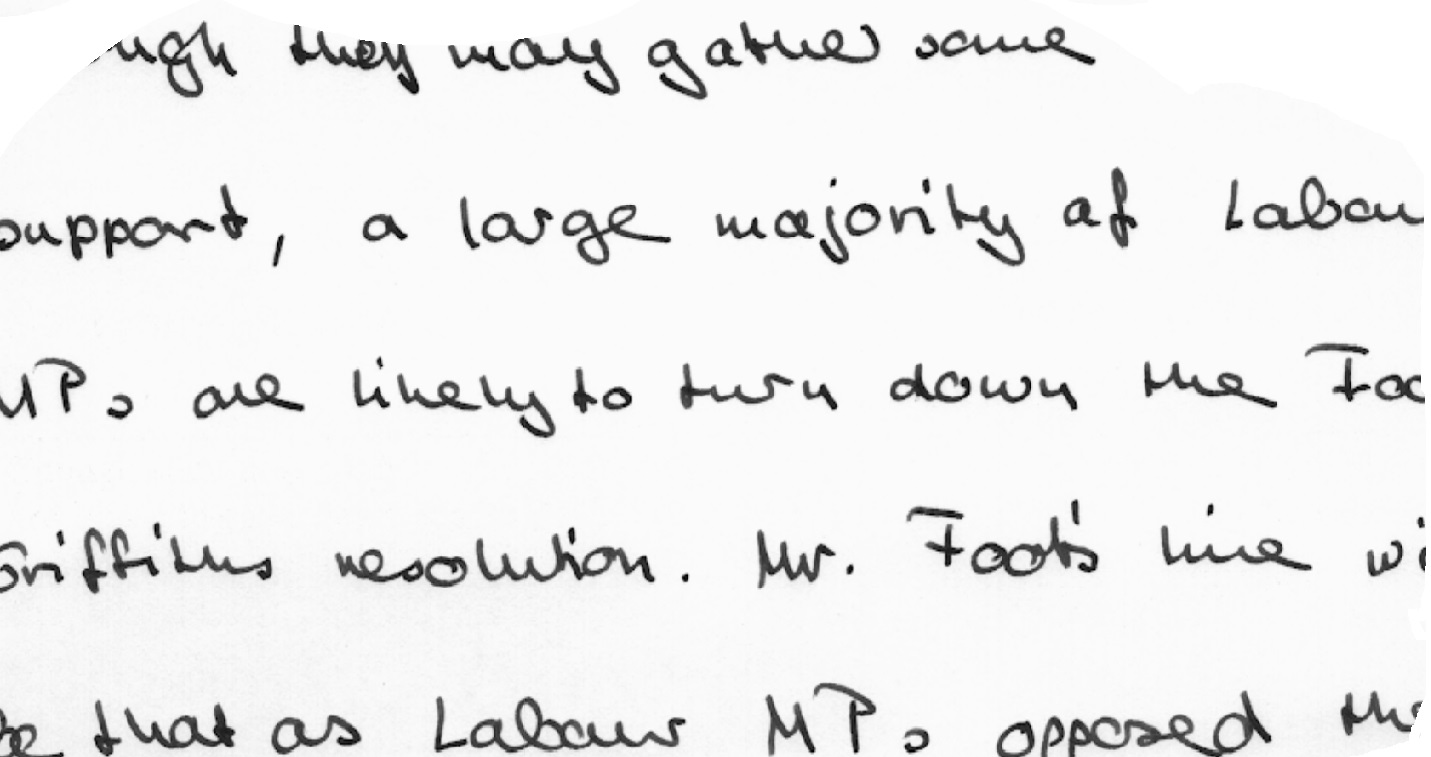 they may gather some
support, a large majority of Labou
MPs are likely to turn down the Foo
Griffiths resolution. Mr. Foot's line wi
be that as Labour MPs opposed the